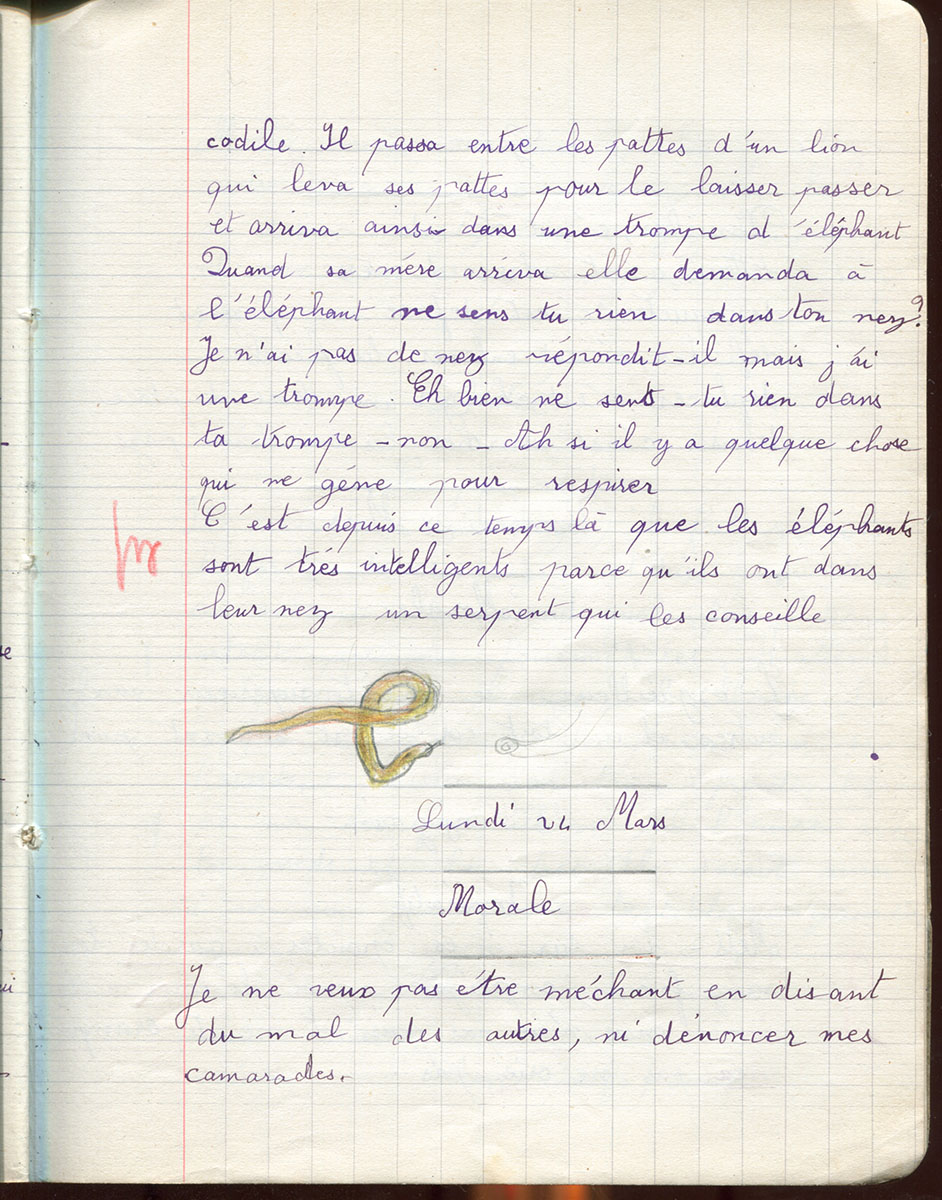 codile. Il passa entre les pattes d'un lion
qui leva ses pattes pour le laisser passer
et arriva ainsi dans une trompe d'éléphant
Quand sa mére arriva elle demanda à
l'éléphant ne sens tu rien dans ton nez?
Je n'ai pas de nez répondit-il mais j'ai
une trompe. Eh bien ne sens-tu rien dans
ta trompe - non - Ah si il y a quelque chose
qui me géne pour respirer
C'est depuis ce temps là que les éléphants
sont trés intelligents parce qu'ils ont dans
leur nez un serpent qui les conseille
Lundi 24 Mars
Morale
Je ne veux pas étre méchant en disant
du mal des autres, ni dénoncer mes
camarades.